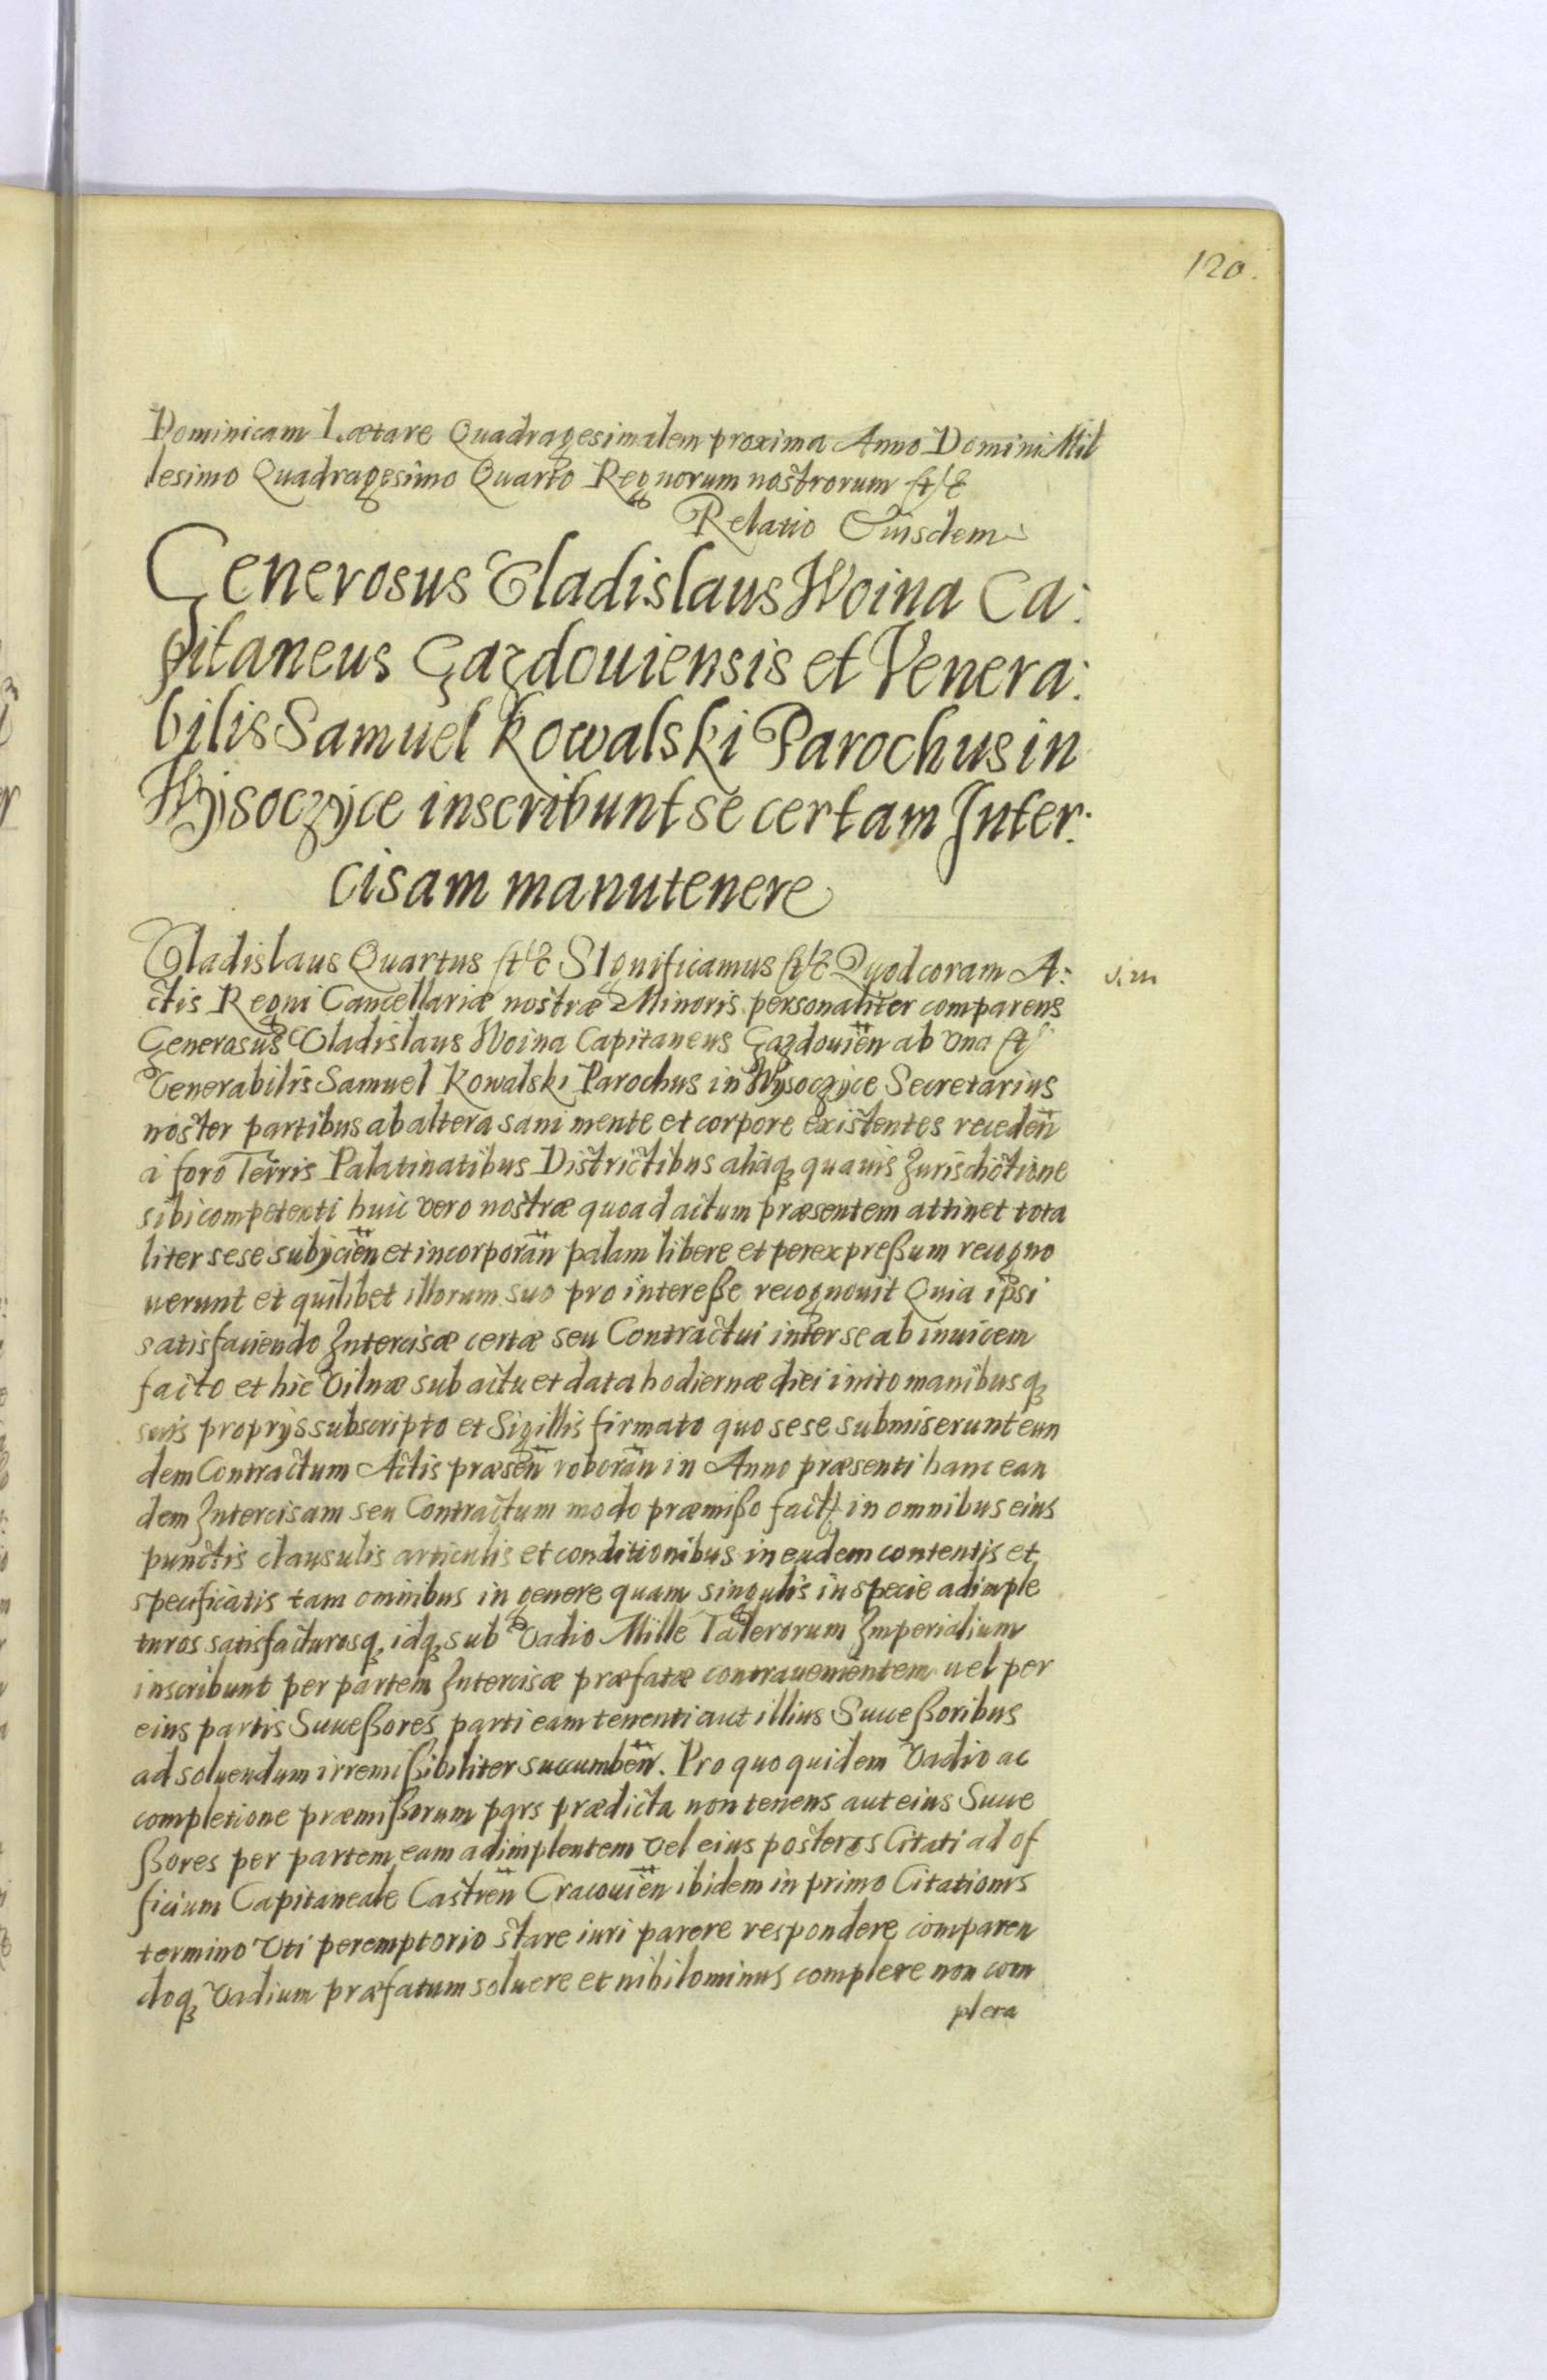 120.
Dominicam Lætare Quadragesimalem proxima Anno Domini Mil
lesimo Quadragesimo Quarto Regnorum nostrorum etc
Relatio Eiusdem
Generosus Vladislaus Woina Ca:
pitaneus Gazdouiensis et Venera:
bilis Samuel Kowalski Parochus in
Wysoczyce inscribunt se certam Inter:
cisam manutenere
Vladislaus Quartus etc Significamus etc Quod coram A:
ctis Regni Cancellariæ nostræ Minoris personaliter comparens
Generosus Vladislaus Woina Capitaneus Gazdouien̄ ab vna et
Venerabilis Samuel Kowalski Parochus in Wysoczyce Secretarius
noster partibus ab altera sani mente et corpore existentes receden̄
à foro Terris Palatinatibus Districtibus aliaq quauis Jurisdictione
sibi competenti huic vero nostræ quoad actum præsentem attinet tota
liter sese subijcien̄ et incorporan̄ palam libere et per expreßum recogno
uerunt et quilibet illorum suo pro intereße recognouit Quia ipsi
satisfaciendo Intercisæ certæ seu Contractui inter se ab inuicem
facto et hic Vilnæ sub actu et data hodiernæ diei inito manibusq
suis proprijs subscripto et Sigillis firmato quo sese submiserunt eun
dem Contractum Actis præsen̄ roboran̄ in Anno præsenti hanc ean
dem Intercisam seu Contractum modo præmißo fact in omnibus eius
punctis clausulis articulis et conditionibus in eadem contentis et
specificatis tam omnibus in genere quam singulis in specie adimple
turos satisfacturosq idq sub Vadio Mille Talerorum Imperialium
inscribunt per partem Intercisæ præfatæ contrauenientem uel per
eius partis Succeßores parti eam tenenti aut illius Succeßoribus
ad soluendum irremißibiliter succumben̄. Pro quo quidem Vadio ac
completione præmißorum pars prædicta non tenens aut eius Succe
ßores per partem eam adimplentem vel eius posteros Citati ad of
ficium Capitaneale Castren̄ Cracouien̄ ibidem in primo Citationis
termino Vti peremptorio stare iuri parere respondere comparen
doq Vadium præfatum soluere et nihilominus complere non com
plera